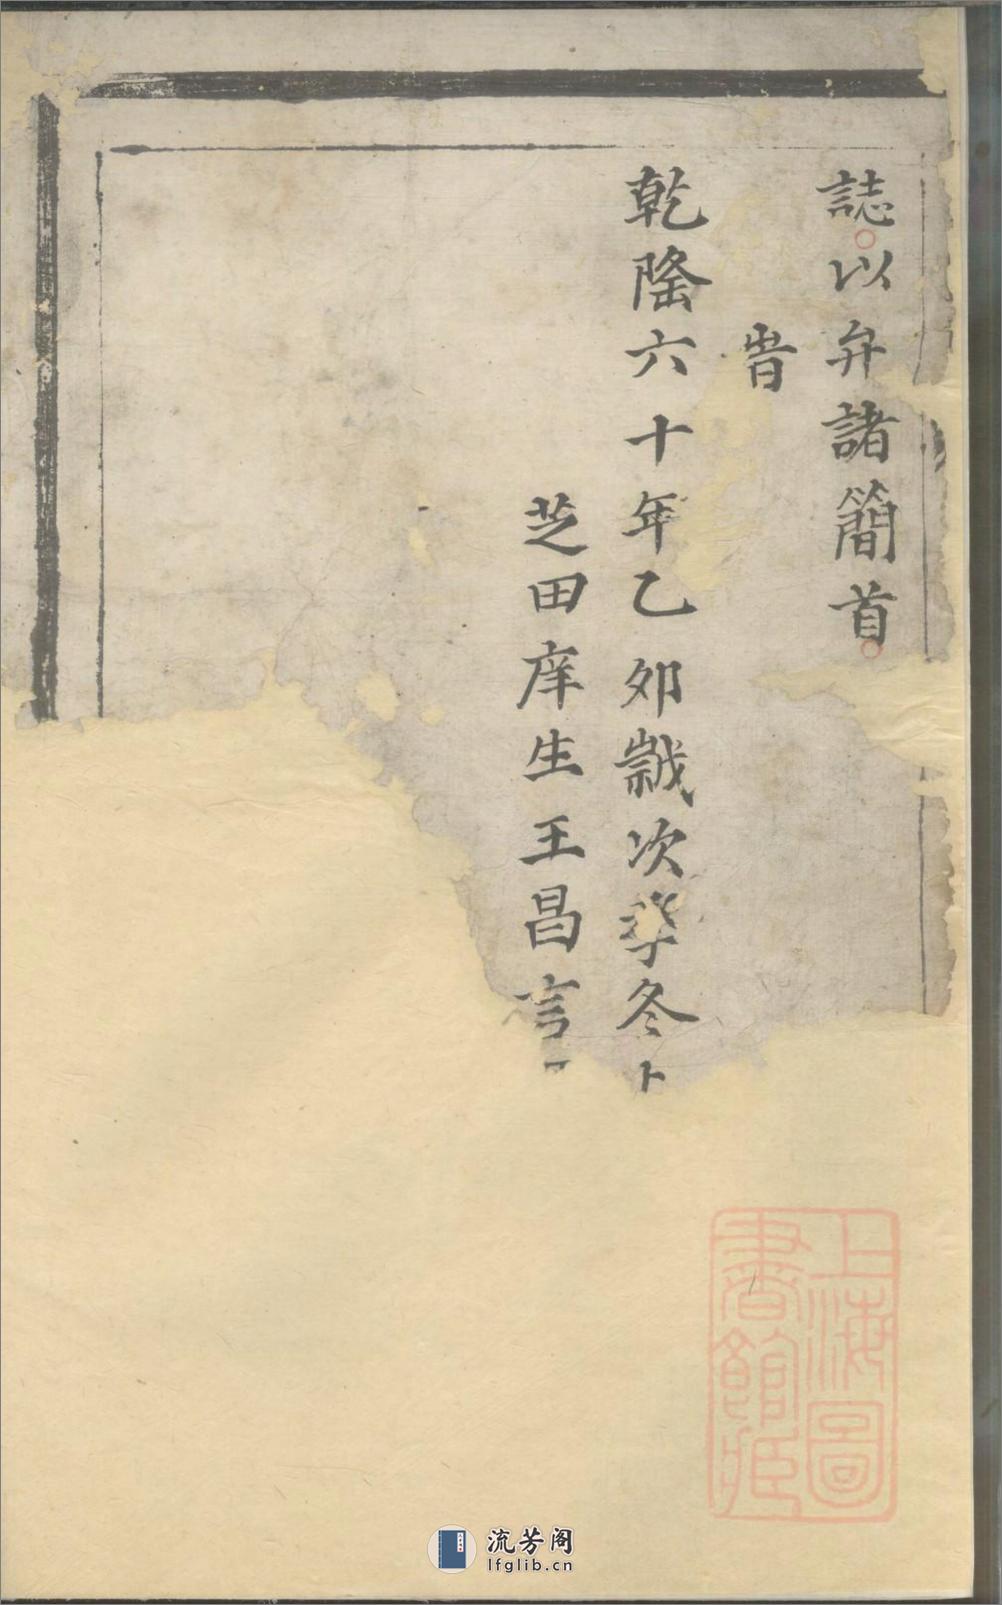 誌以弁諸簡首
旹
乾隆六十年乙夘歲次季冬
芝田庠生王昌言
上海圖
書館藏
流芳阁
lfglib.cn